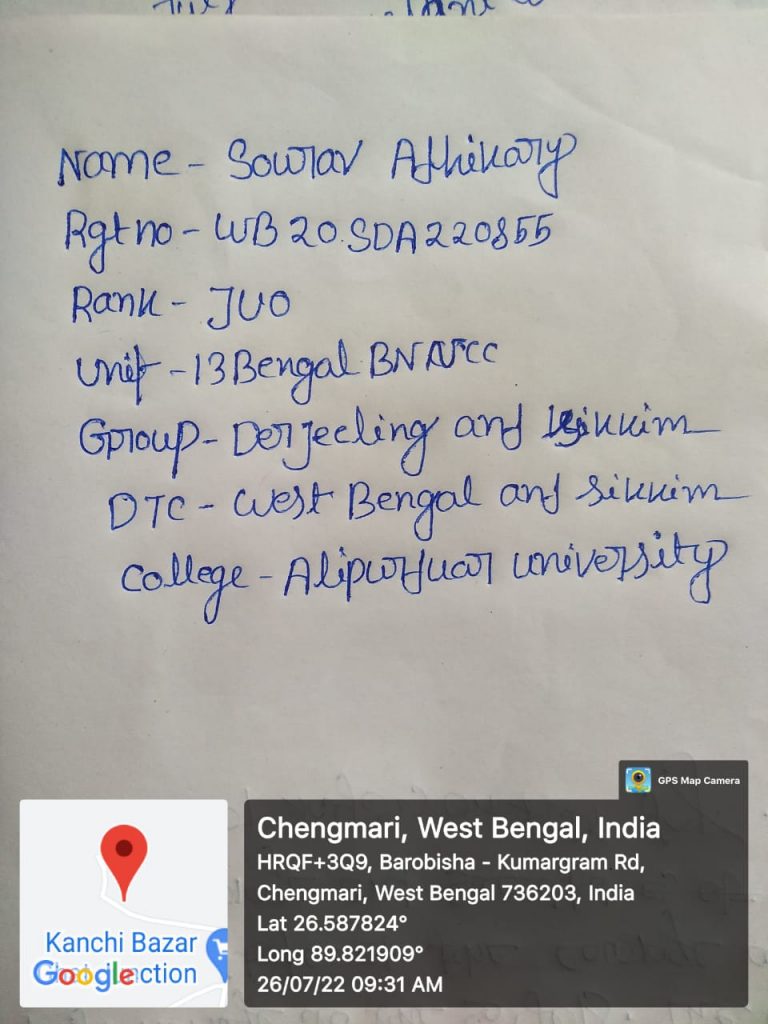 Name - Sourav Adhikary
Rgt no - WB20SDA220855
Rank - JUO
Unit - 13 Bengal BN NCC
Group - Derjeeling and Sikkim
DTC - West Bengal and Sikkim
College - Alipurduar university
GPS Map Camera
Chengmari, West Bengal, India
HRQF+3Q9, Barobisha - Kumargram Rd,
Chengmari, West Bengal 736203, India
Lat 26.587824°
Long 89.821909°
26/07/22 09:31 AM
Kanchi Bazar
Google